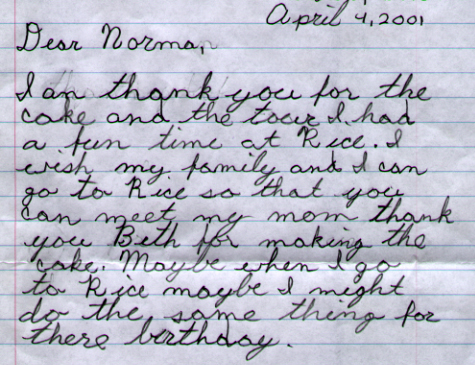 April 4, 2001
Dear Norman,
I an thank you for the
cake and the tour I had
a fun time at Rice. I
wish my family and I can
go to Rice so that you
can meet my mom thank
you Beth for making the
cake. Maybe when I go
to Rice maybe I might
do the same thing for
there birthday.